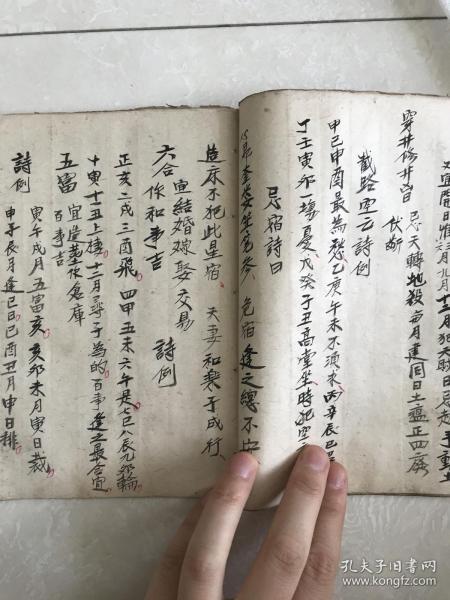 又宜開日惟三月九月十二月犯天賊日忌走于動土
穿井修井皆忌天轉地殺每月建同日土瘟正四廢
伏斷
截路空亡詩例
甲己申酉最為愁乙庚午未不須求丙辛辰巳
丁壬寅卯一塲憂戊癸子丑高堂坐時犯空
忌宿詩曰
奎婁 危宿逢之總不安
造床不犯此星宿 夫妻和樂子成行
宜結婚嫁娶交易
六合作和事吉 詩例
正亥二戌三酉飛四申五未六午是七巳八辰九卯輪
十寅十一丑上樓十二月尋子為的百事逢之最合宜
五富 宜 倉庫
百事吉
詩例 寅午戌月五富亥亥卯未月寅日裁
申子辰月逢巳日巳酉丑月申日排
孔夫子旧书网
www.kongfz.com